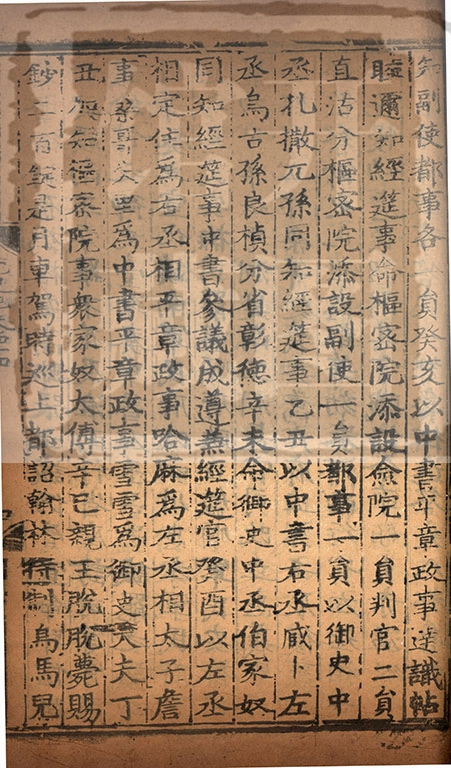 知副使都事各一員癸亥以中書平章政事達識帖
睦邇知經筵事命樞密院添設僉院一員判官二員
直沽分樞密院添設副使一員都事一員以御史中
丞扎撒兀孫同知經筵事乙丑以中書右丞臧卜左
丞烏古孫良楨分省彰德辛未命御史中丞伯家奴
同知經筵事中書參議成遵兼經筵官癸酉以左丞
相定住為右丞相平章政事哈麻為左丞相太子詹
事桑哥失里為中書平章政事雪雪為御史大夫丁
丑 知樞密院事衆家奴太傅辛巳親王脫脫薨賜
鈔二百錠是月車駕時巡上都詔翰林待制烏馬兒